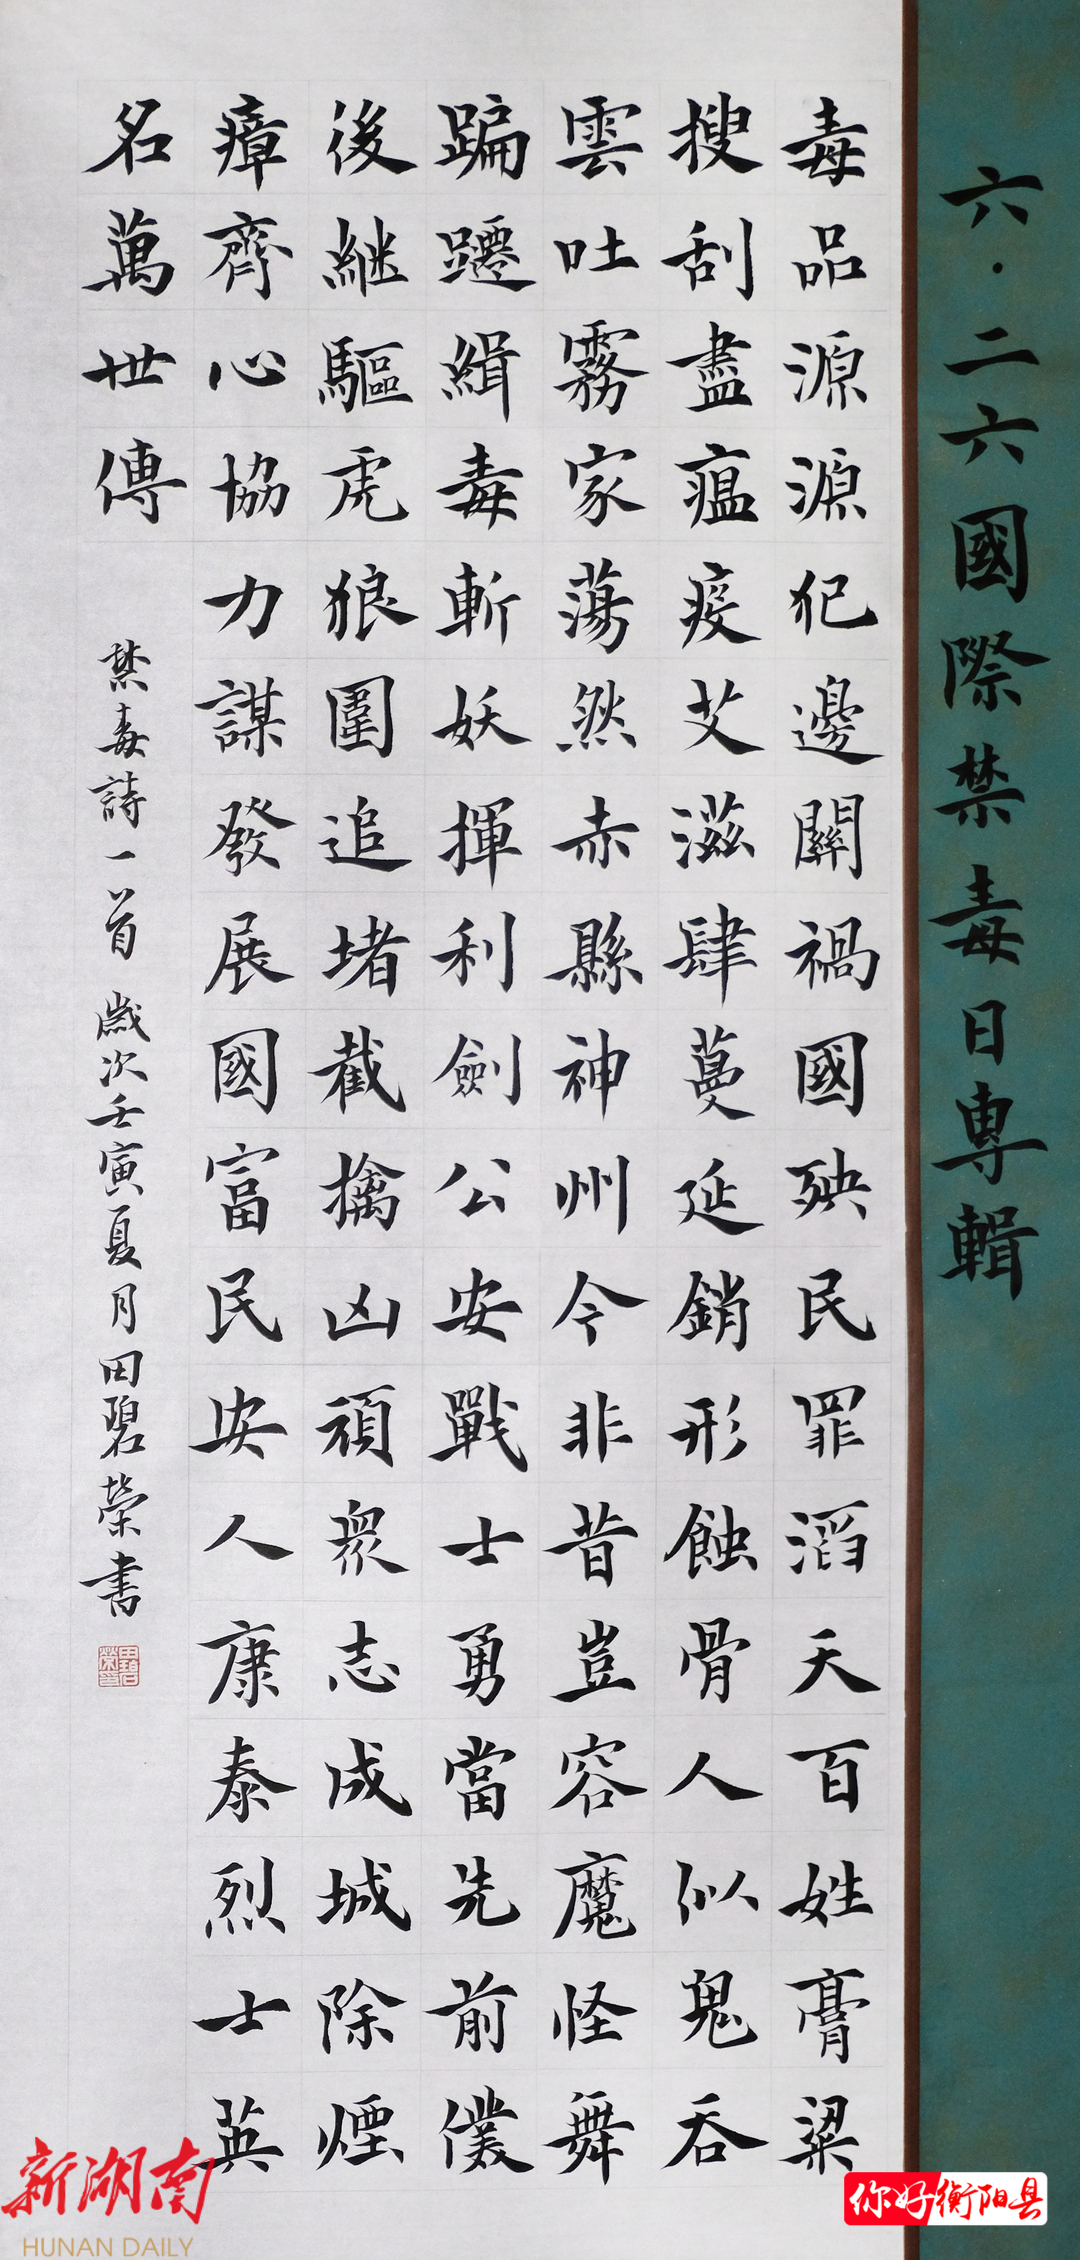 六·二六國際禁毒日專輯
毒品源源犯邊關禍國殃民罪滔天百姓膏粱
搜刮盡瘟疫艾滋肆蔓延銷形蝕骨人似鬼吞
雲吐霧家蕩然赤縣神州今非昔豈容魔怪舞
蹁躚緝毒斬妖揮利劍公安戰士勇當先前僕
後継驅虎狼圍追堵截擒凶頑衆志成城除煙
瘴齊心協力謀發展國富民安人康泰烈士英
名萬世傳
禁毒詩一首 歲次壬寅夏月田碧榮书
田碧榮印
新湖南
HUNAN DAILY
你好衡阳县